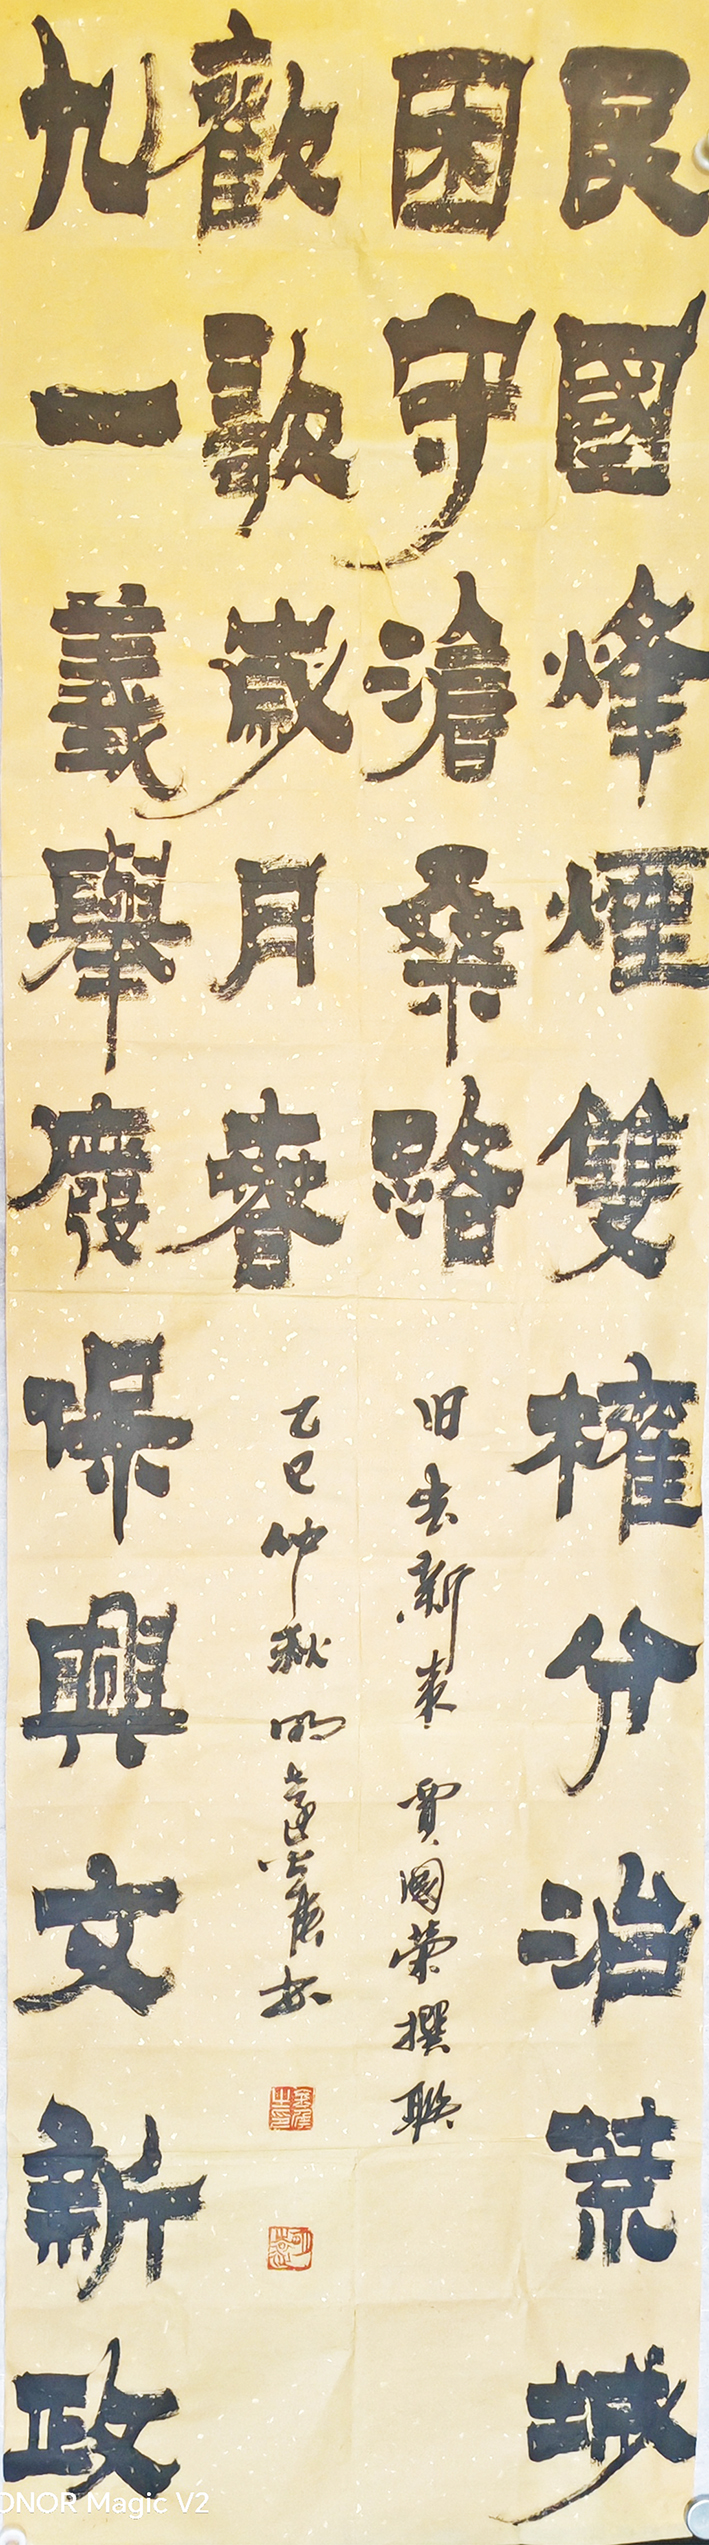 民國烽煙雙權分治荒城
困守滄桑路
旧去新来 賈國榮撰聯
九一義舉廢保興文新政
歡歌歲月春
乙巳仲秋明
ONOR Magic V2